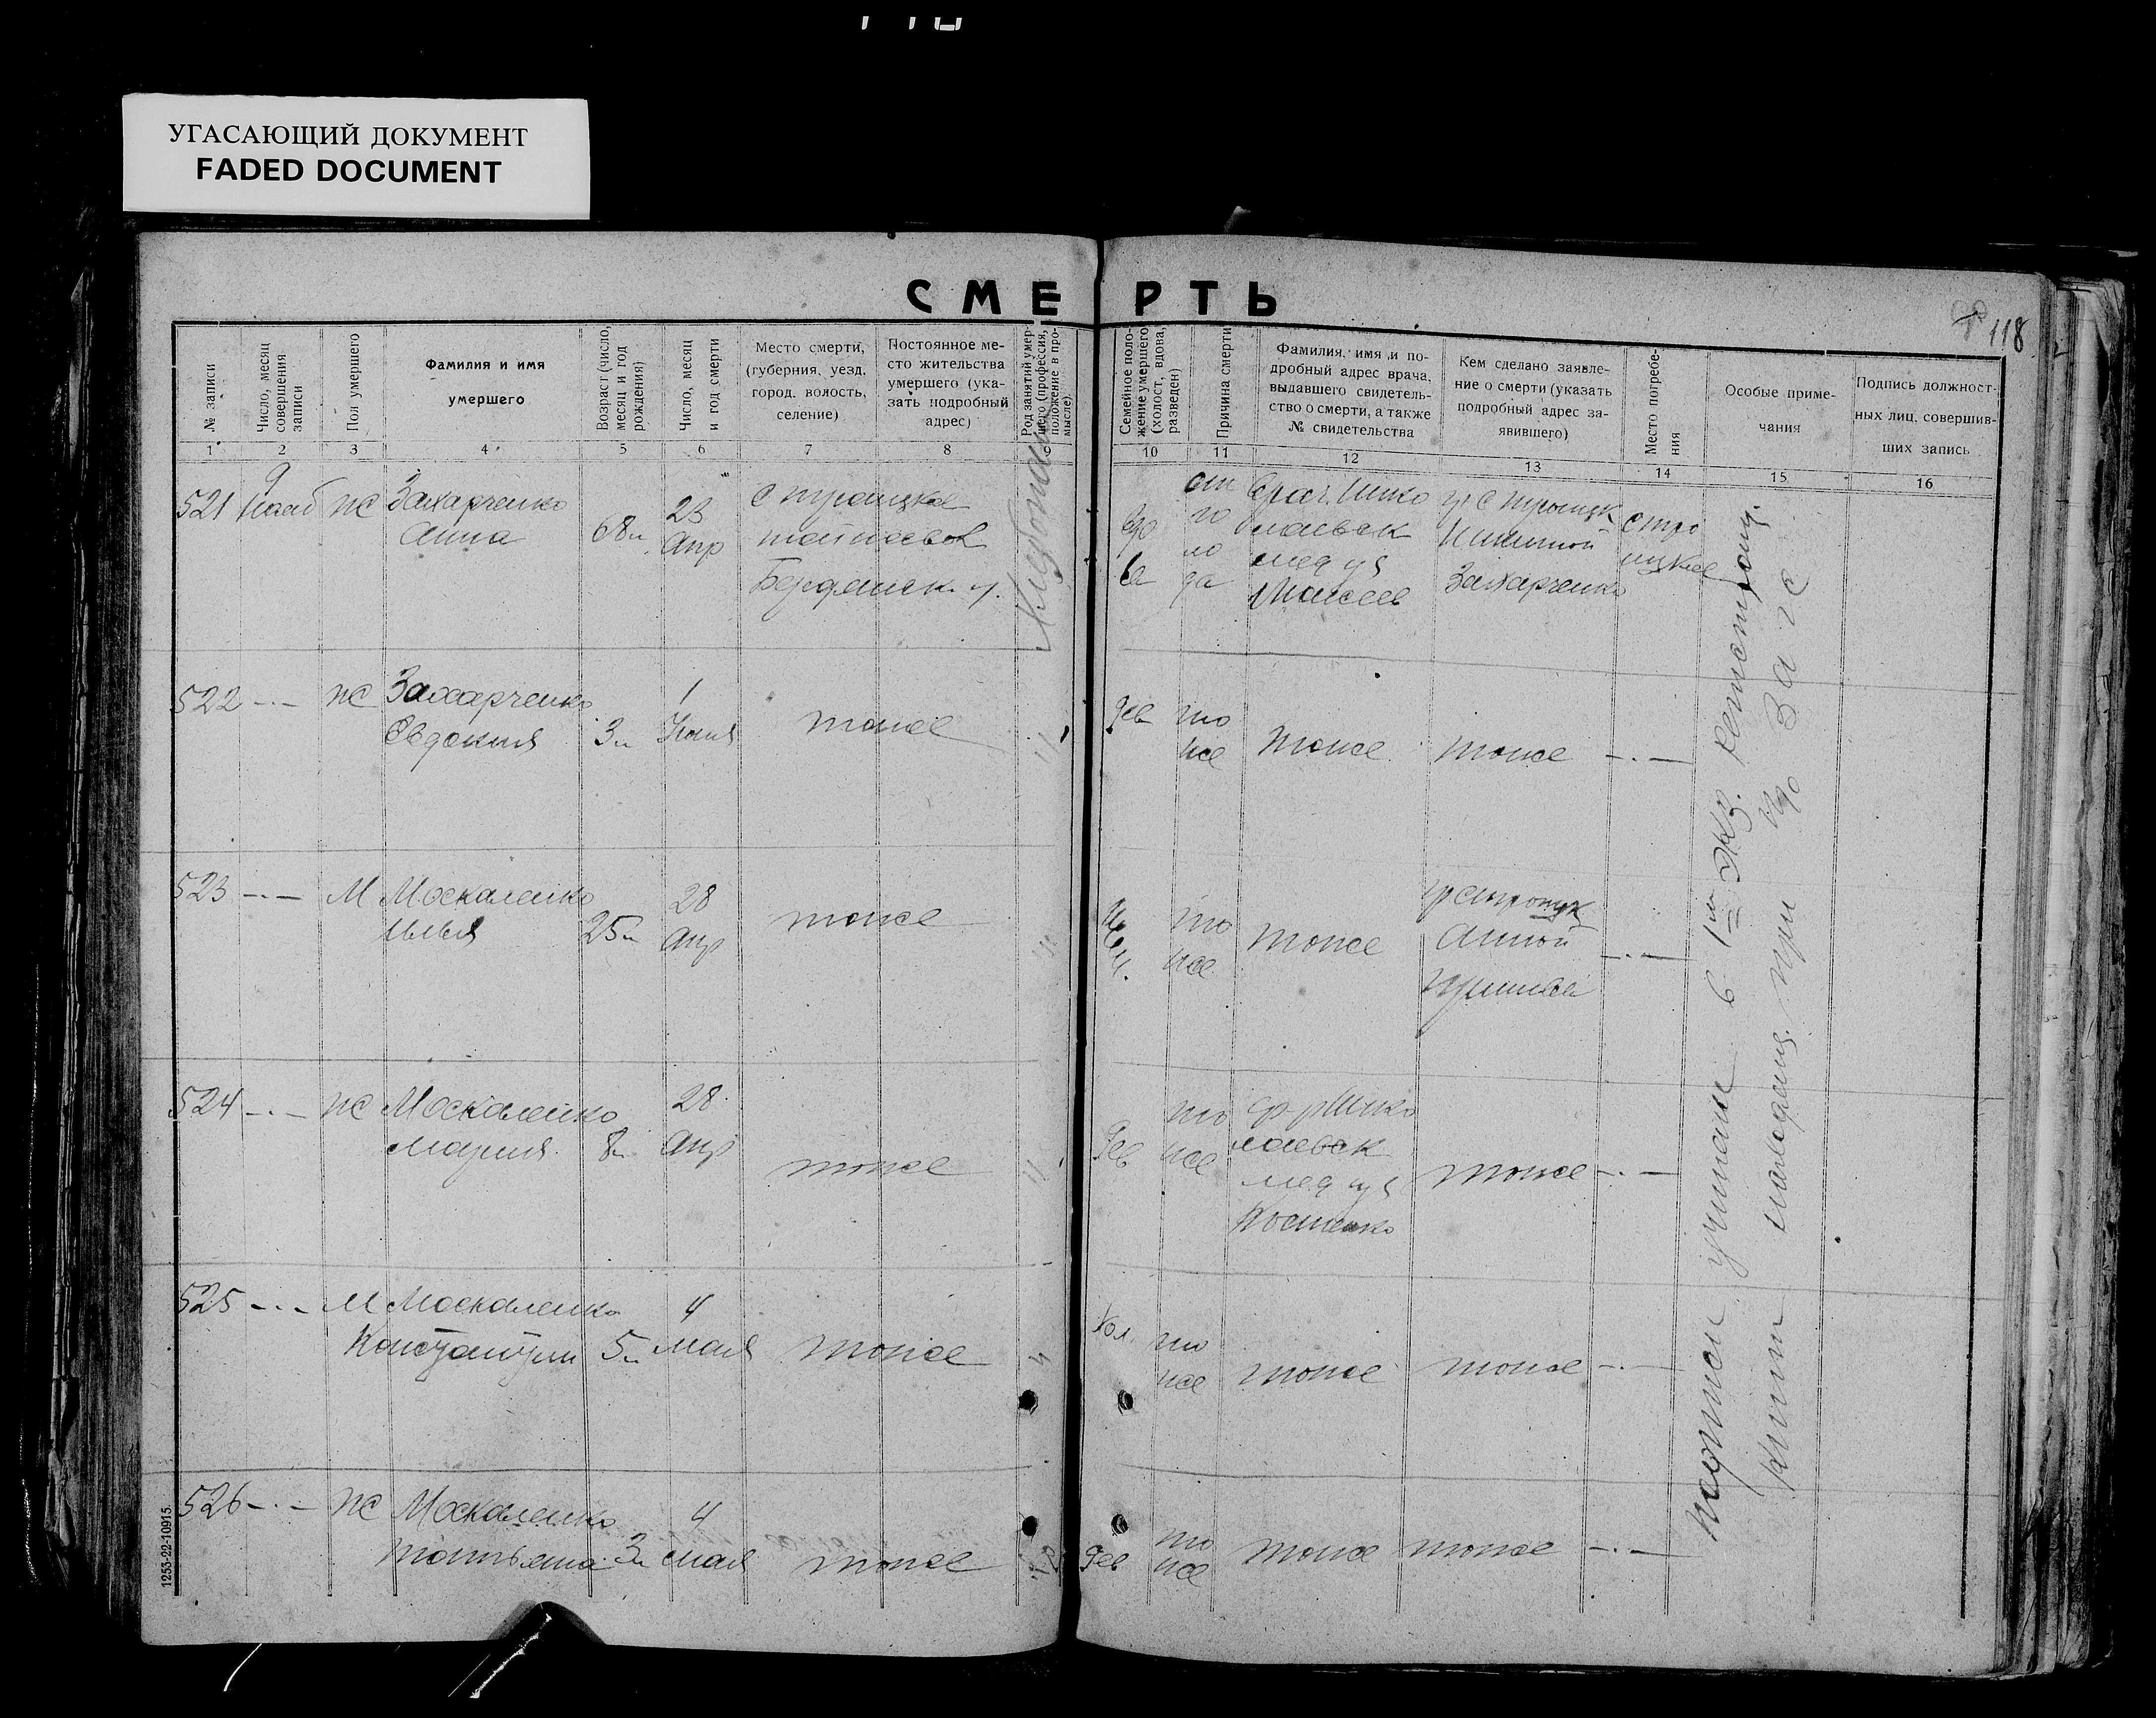 УГАСАЮЩИЙ ДОКУМЕНТ
FADED DOCUMENT
СМЕРТЬ
118
№ записи
Число, месяц
совершения
записи
Пол умершего
Фамилия и имя
умершего
Возраст (число,
месяц и год
рождения)
Число, месяц
и год смерти
Место смерти,
(губерния, уезд,
город, волость,
селение)
Постоянное ме-
сто жительства
умершего (ука-
зать подробный
адрес)
Род занятий умер-
шего (профессия,
положение в про-
мысле).
Семейное поло-
жение умершего
(холост, вдова,
разведен)
Причина смерти
Фамилия, имя и по-
дробный адрес врача,
выдавшего свидетель-
ство о смерти, а также
№ свидетельства
Кем сделано заявле-
ние о смерти (указать
подробный адрес за-
явившего)
Место погребе-
ния
Особые приме-
чания
Подпись должност-
ных лиц, совершив-
ших запись
1 2 3 4 5 6 7 8 9 10 11 12 13 14 15 16
521
9
жс
Захарченко
Анна
68л
23
Апр
с троицкое
Бердянск у.
вдо
ва
от
го
ло
да
Врач. Нико
лаевск
мед уч
Моисеев
гр с Троицк
Никитой
Захарченко
с тро
ицкое
522 -·- жс
Захарченко
Евдокия
3л
1
Июня
тоже
"
дев
то
же
тоже
тоже
-·-
523 -·- М
Москаленко
Илья
25л
28
Апр
тоже
"
то
же
тоже
гр с троицк
Анной
-·-
524 -·- жс
Москаленко
Мария
8л
28
Апр
тоже
"
дев
то
же
ф-р Нико
лаевск
мед уч
Костенко
тоже
-·-
525 -·- М
Москаленко
Константин
5л
4
мая
тоже
хол.
то
же
тоже
тоже
-·-
526 -·- жс
Москаленко
Татьяна
3л
4
мая
тоже
дев
то
же
тоже
тоже
-·-
в 1м экз.
книги находящ. при
Загс
1253-22-10915